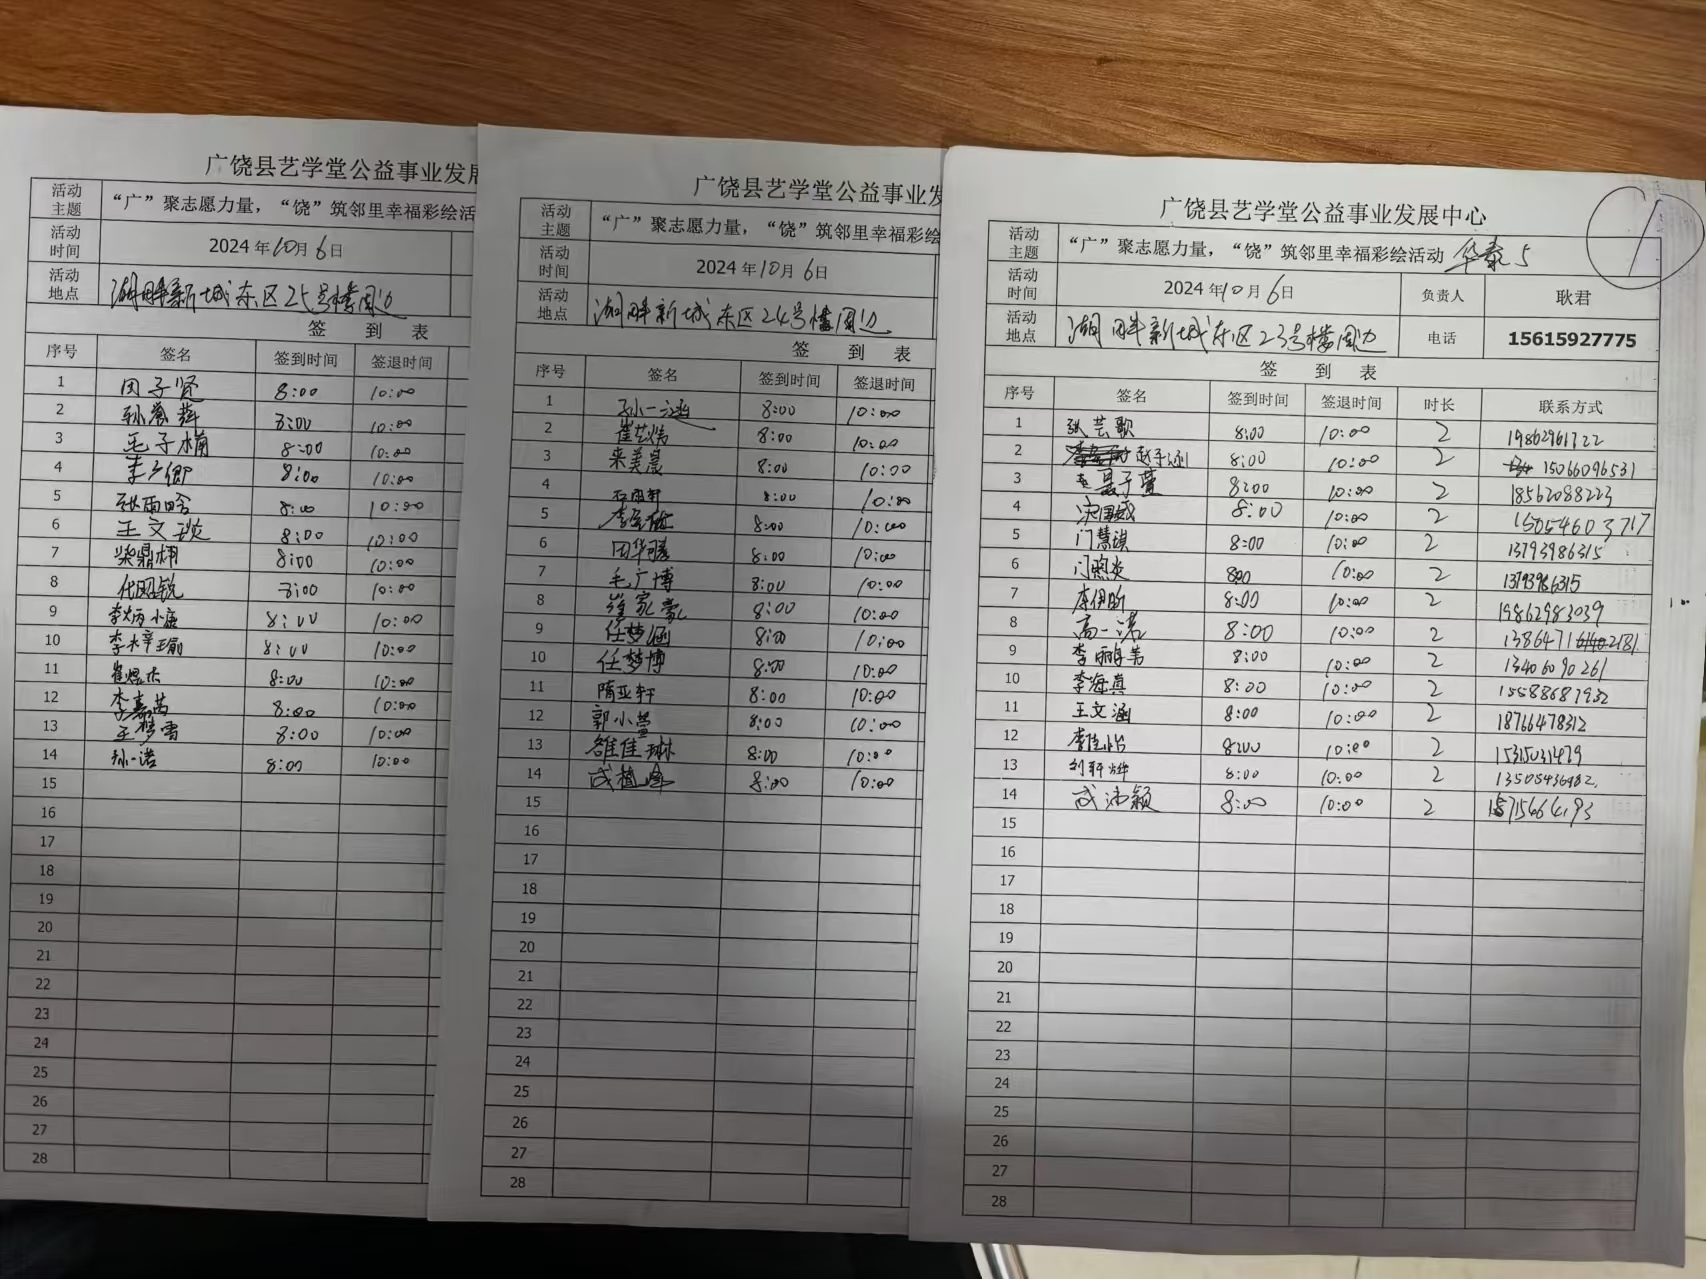 广饶县艺学堂公益事业发
活动主题 “广”聚志愿力量，“饶”筑邻里幸福彩绘活
活动时间 2024年10月6日
活动地点 湖畔新城东区25号楼周边
签 到 表
序号 签名 签到时间 签退时间
1 因子贤 8:00 10:00
2 8:00 10:00
3 毛子楠 8:00 10:00
4 8:00 10:00
5 张雨晗 8:00 10:00
6 王文琰 8:00 10:00
7 柴鼎栩 8:00 10:00
8 8:00 10:00
9 8:00 10:00
10 8:00 10:00
11 崔煜杰 8:00 10:00
12 李嘉茵 8:00 10:00
13 王梦雪 8:00 10:00
14 孙一诺 8:00 10:00
15
16
17
18
19
20
21
22
23
24
25
26
27
28
广饶县艺学堂公益事业发
活动主题 “广”聚志愿力量，“饶”筑邻里幸福彩绘
活动时间 2024年10月6日
活动地点 湖畔新城东区24号楼周边
签 到 表
序号 签名 签到时间 签退时间
1 孙一涵 8:00 10:00
2 崔艺炜 8:00 10:00
3 来美晨 8:00 10:00
4 8:00 10:00
5 8:00 10:00
6 田华腾 8:00 10:00
7 毛广博 8:00 10:00
8 崔家豪 8:00 10:00
9 任梦涵 8:00 10:00
10 任梦博 8:00 10:00
11 隋亚轩 8:00 10:00
12 郭小萱 8:00 10:00
13 雒佳琳 8:00 10:00
14 成植峰 8:00 10:00
15
16
17
18
19
20
21
22
23
24
25
26
27
28
1
广饶县艺学堂公益事业发展中心
活动主题 “广”聚志愿力量，“饶”筑邻里幸福彩绘活动 华泰5
活动时间 2024年10月6日 负责人 耿君
活动地点 湖畔新城东区23号楼周边 电话 15615927775
签 到 表
序号 签名 签到时间 签退时间 时长 联系方式
1 张芸歌 8:00 10:00 2 19862961722
2 赵子涵 8:00 10:00 2 15066096531
3 8:00 10:00 2 18562088223
4 8:00 10:00 2 15054603717
5 门慧琪 8:00 10:00 2 13793986315
6 门照炎 8:00 10:00 2 13793986315
7 李伊昕 8:00 10:00 2 19862983039
8 高一诺 8:00 10:00 2
9 8:00 10:00 2 13406090261
10 李海真 8:00 10:00 2 15588687932
11 王文涵 8:00 10:00 2 18766478312
12 李佳怡 8:00 10:00 2 15315031479
13 刘轩烨 8:00 10:00 2 13505436982
14 成沛颖 8:00 10:00 2
15
16
17
18
19
20
21
22
23
24
25
26
27
28